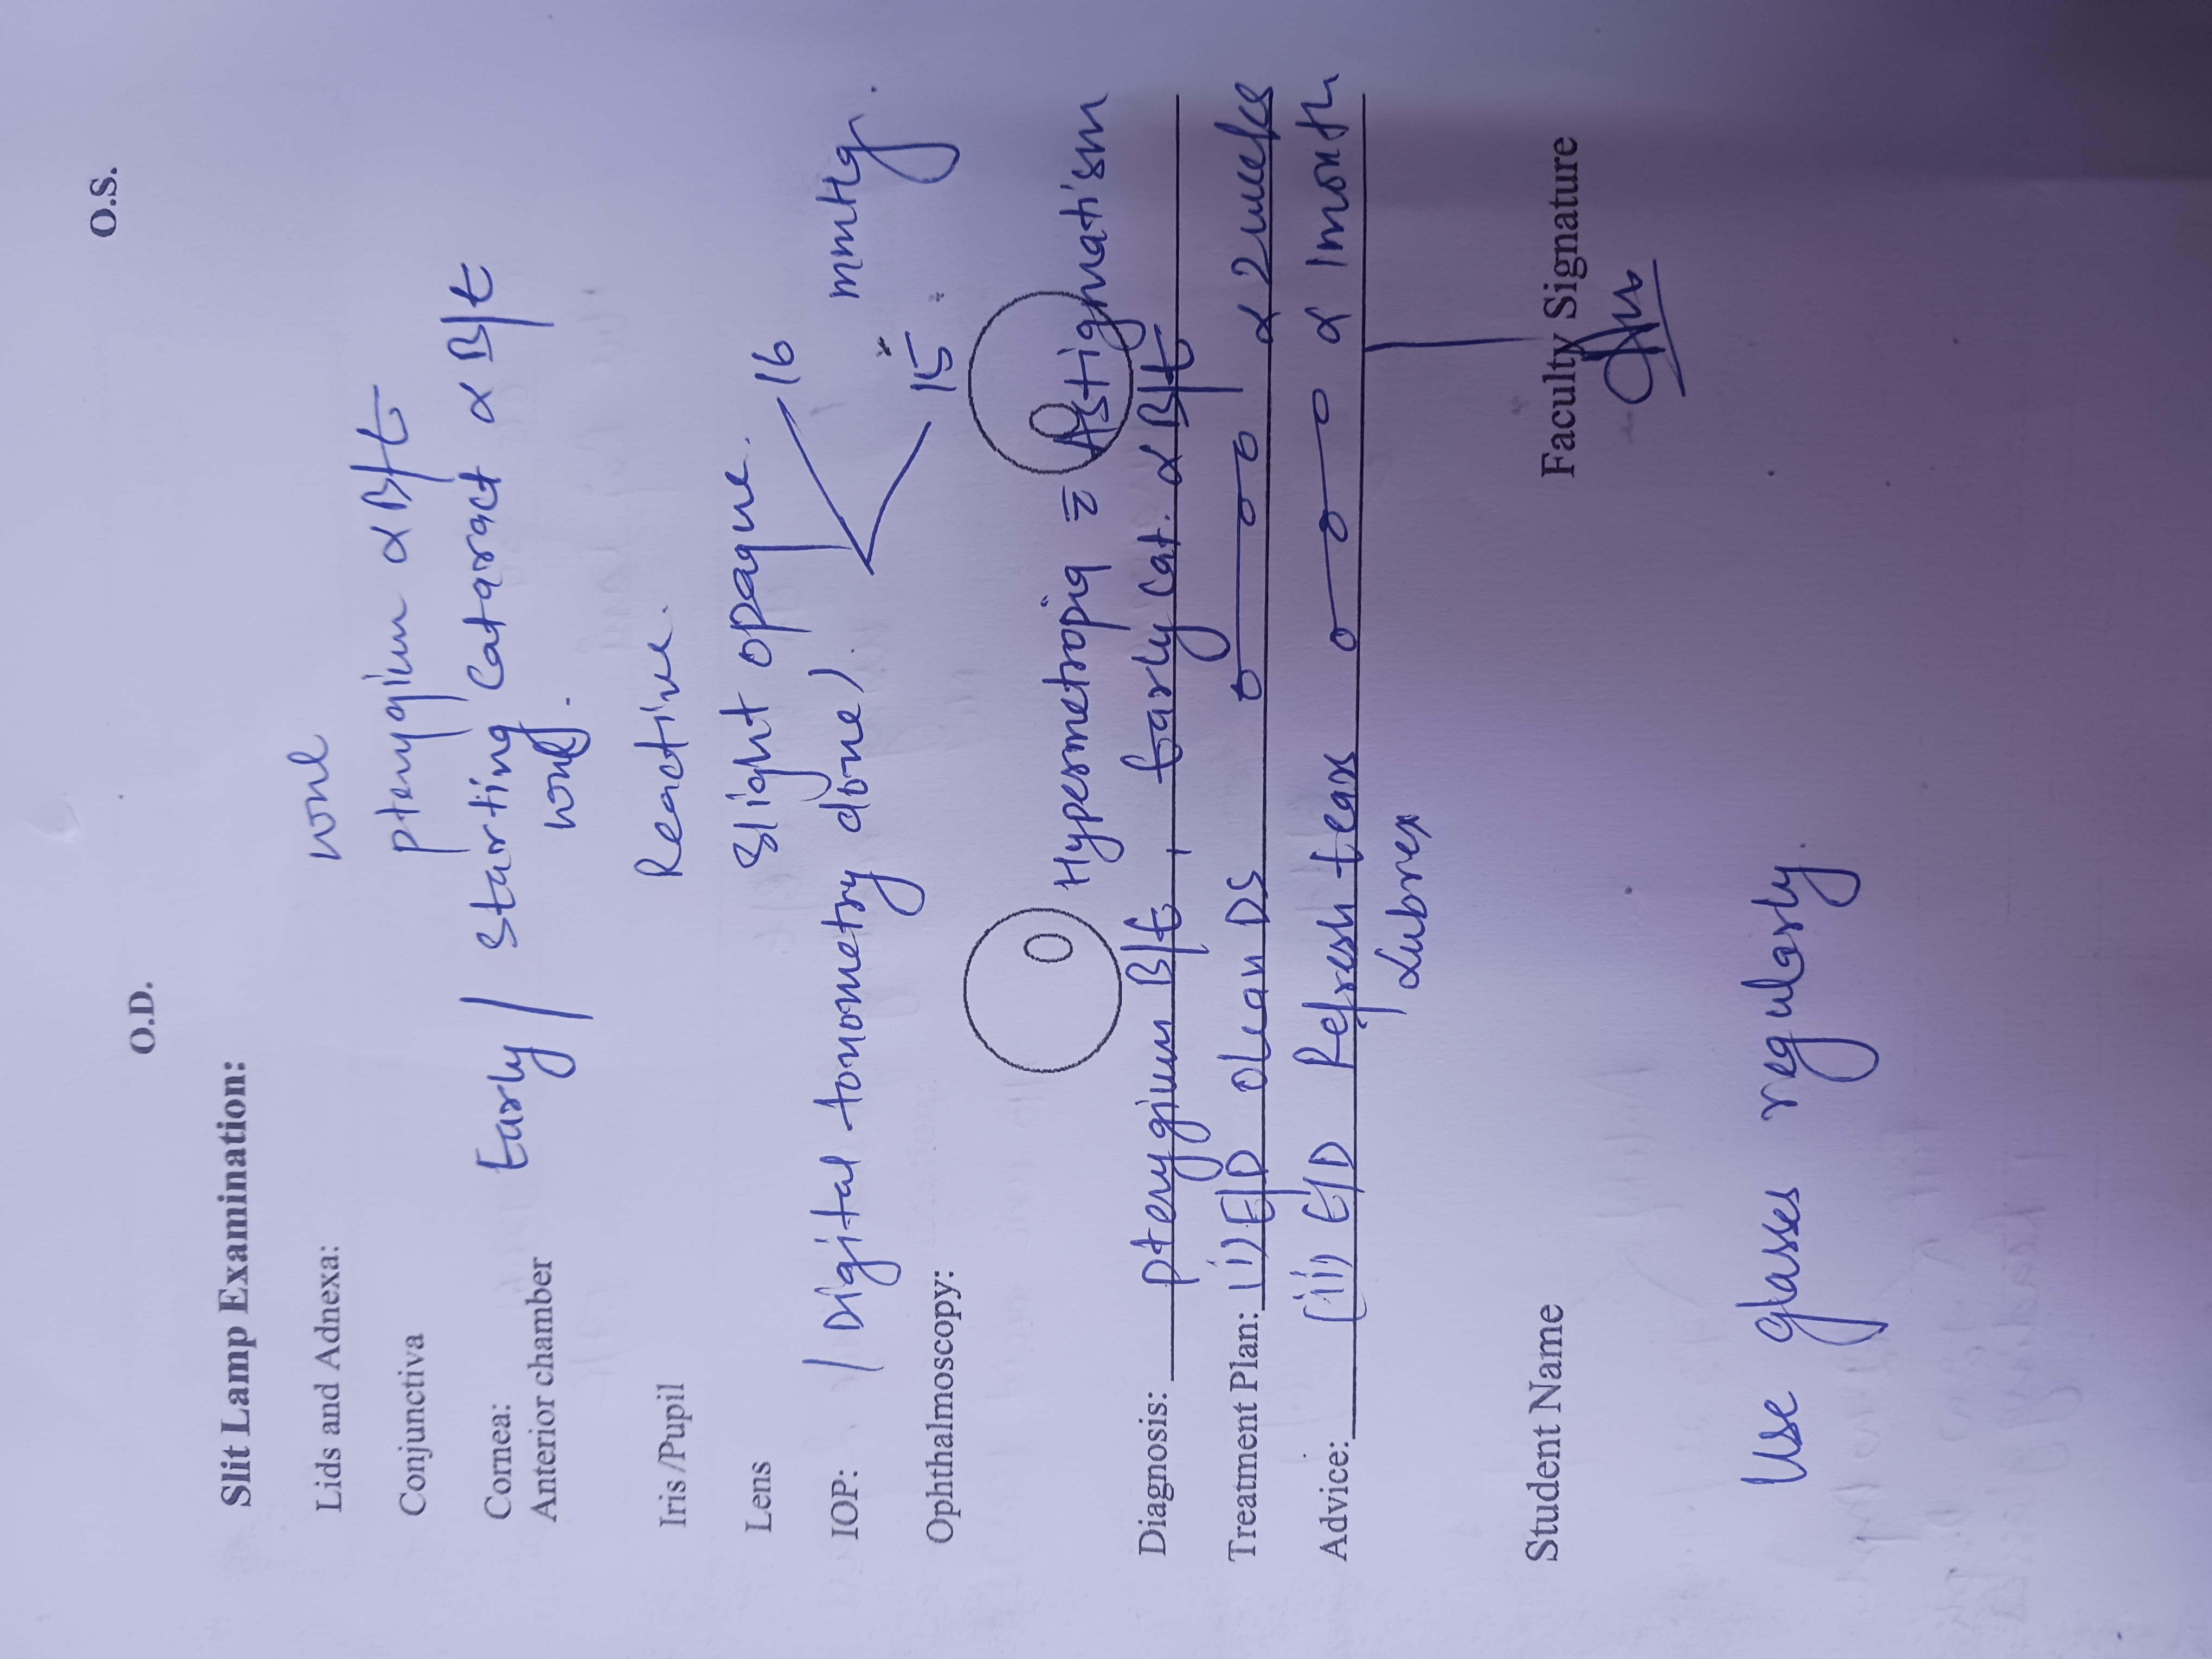 O.S.
O.D.
Slit Lamp Examination:
Lids and Adnexa: wnl
Conjunctiva pterygium α B/E
Cornea: Early / Starting Cataract α B/E
Anterior chamber wnl.
Iris /Pupil Reactive.
Lens Slight opaque.
16
IOP: (Digital tonometry done). mmHg
15
Ophthalmoscopy:
Hypermetropia c̄ Astigmatism
Diagnosis: pterygium B/E , Early Cat. α B/E
Treatment Plan: (i) E/D DS α 2 weeks
Advice: (ii) E/D Refresh tears α 1 month
Lubrex
Student Name Faculty Signature
Use glasses regularly.